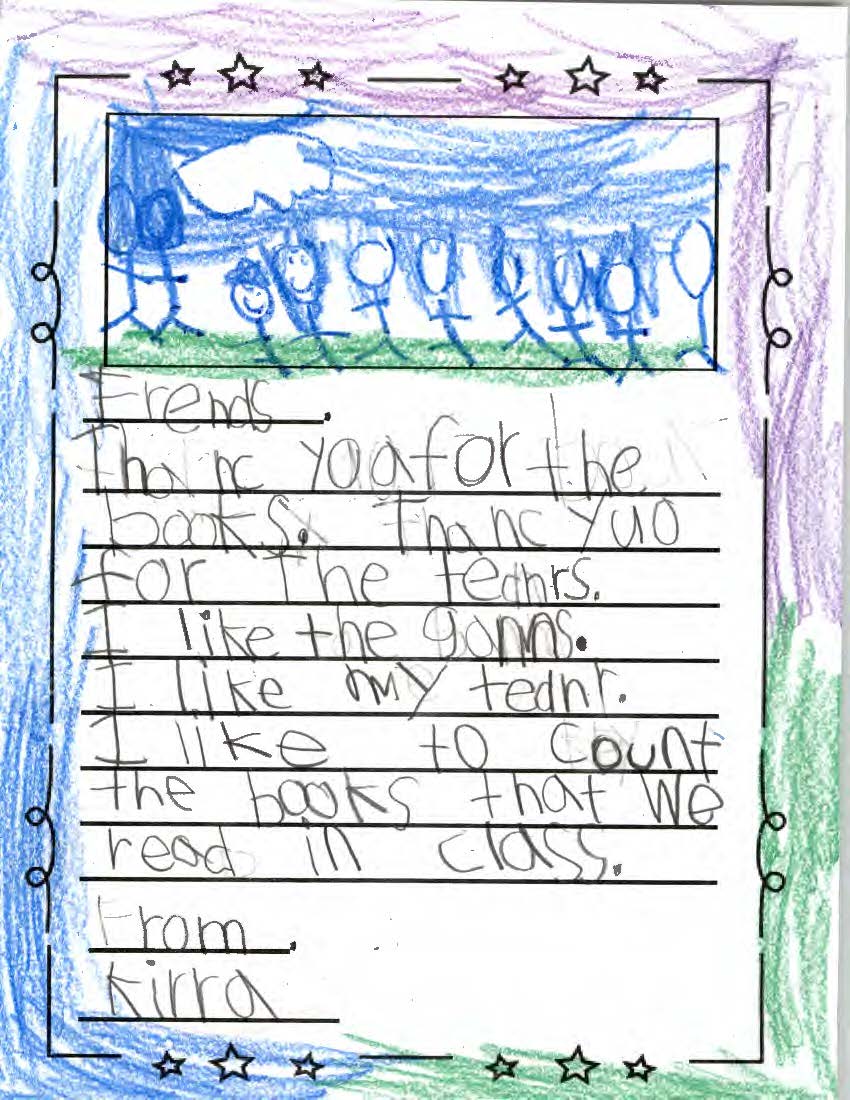 Frends.
Thanc yoa for the
books. Thanc yuo
for The teahrs.
I like the gonns.
I like my teahr.
I like to count
the books that we
read in class.
From.
Kirra